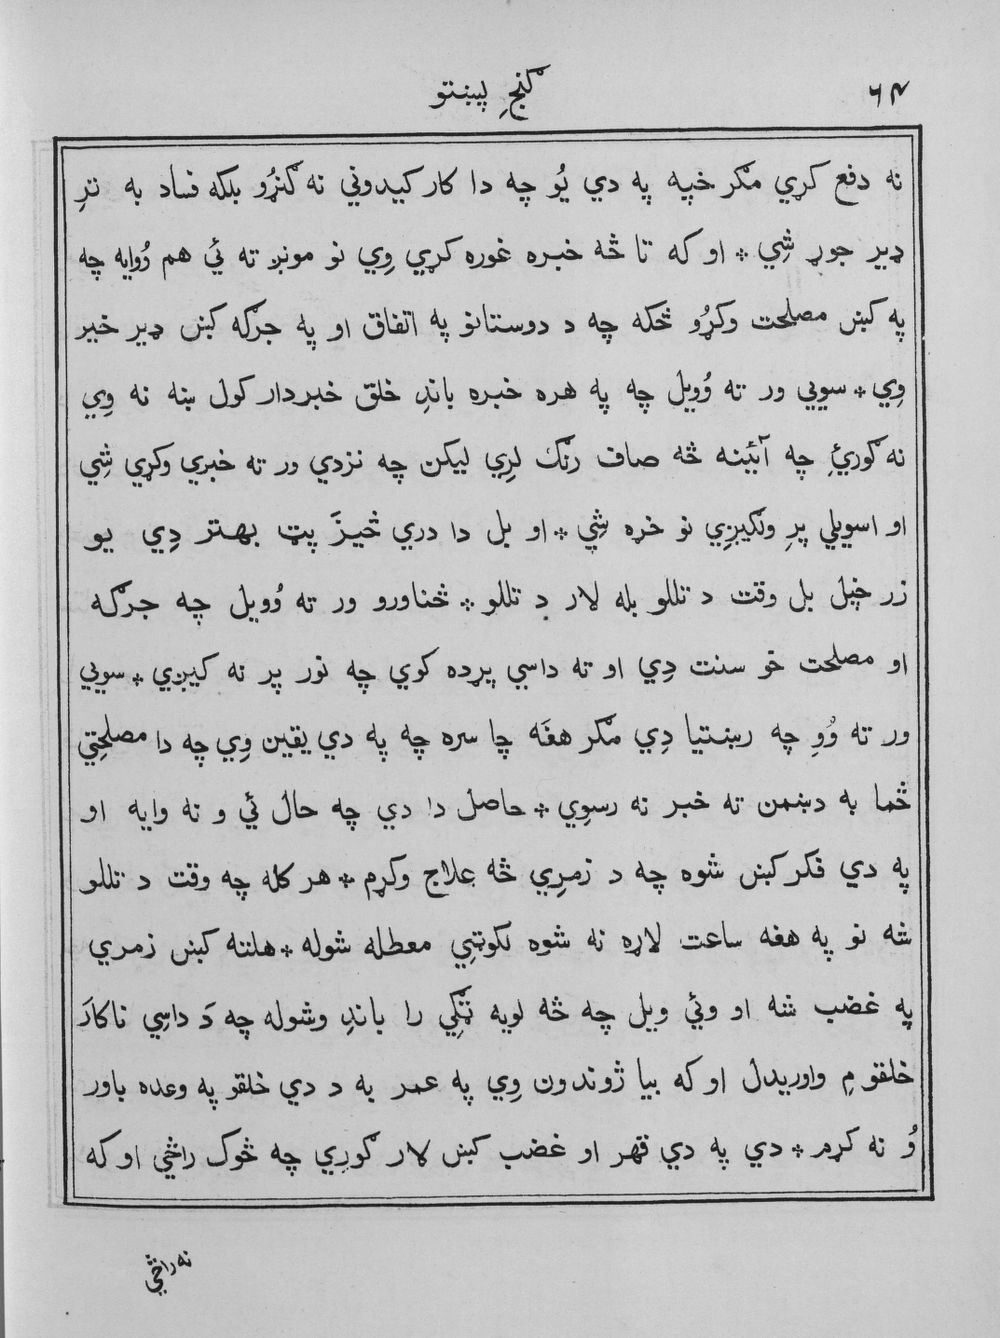 ۶۴
ګنجِ پښتو
نه دفع کړي مګر خپه په دي يُو چه دا کار کيدوني نه ګنړُو بلکه فساد به ترِ
ډير جوړ شِي ٭ او که تا څه خبره غوره کړي وِي نو مونږ ته ئي هم وُوايه چه
په کښ مصلحت وکړُو ځکه چه د دوستانو په اتفاق او په جرګه کښ ډير خير
وِي ٭ سويي ور ته وُويل چه په هره خبره باندِ خلق خبردار کول ښه نه وِي
نه ګورئِ چه آئينه څه صاف رنګ لرِي ليکن چه نزدي ور ته خبري وکړي شِي
او اسويلي پرِ ولګيږِي نو خړه شِي ٭ او بل دا دري څيزَ پټ بهتر دِي يو
زر خپل بل وقت د تللو بله لار د تللو ٭ ځناورو ور ته وُويل چه جرګه
او مصلحت خو سنت دِي او ته داسي پرده کوي چه نور پر نه کيږي ٭ سويي
ور ته وُوِ چه رښتيا دِي مګر هغَه چا سره چه په دي يقين وِي چه دا مصلحتِي
څما به دښمن ته خبر نه رسوِي ٭ حاصل دا دي چه حال ئي و نه وايه او
په دي فکر کښ شوه چه د زمرِي څه علاج وکړم ٭ هر کله چه وقت د تللو
شه نو په هغه ساعت لاړه نه شوه لکوټِي معطله شوله ٭ هلته کښ زمري
په غضب شه او وئي ويل چه څه لويه ټګِي را باندِ وشوله چه دَ داسِي ناکارَ
خلقو مِ واوريدل او که بيا ژوندون وِي په عمر به د دي خلقو په وعده باور
وُ نه کړم ٭ دي په دي قهر او غضب کښ لار ګورِي چه څوک راځي او که
نه راځي